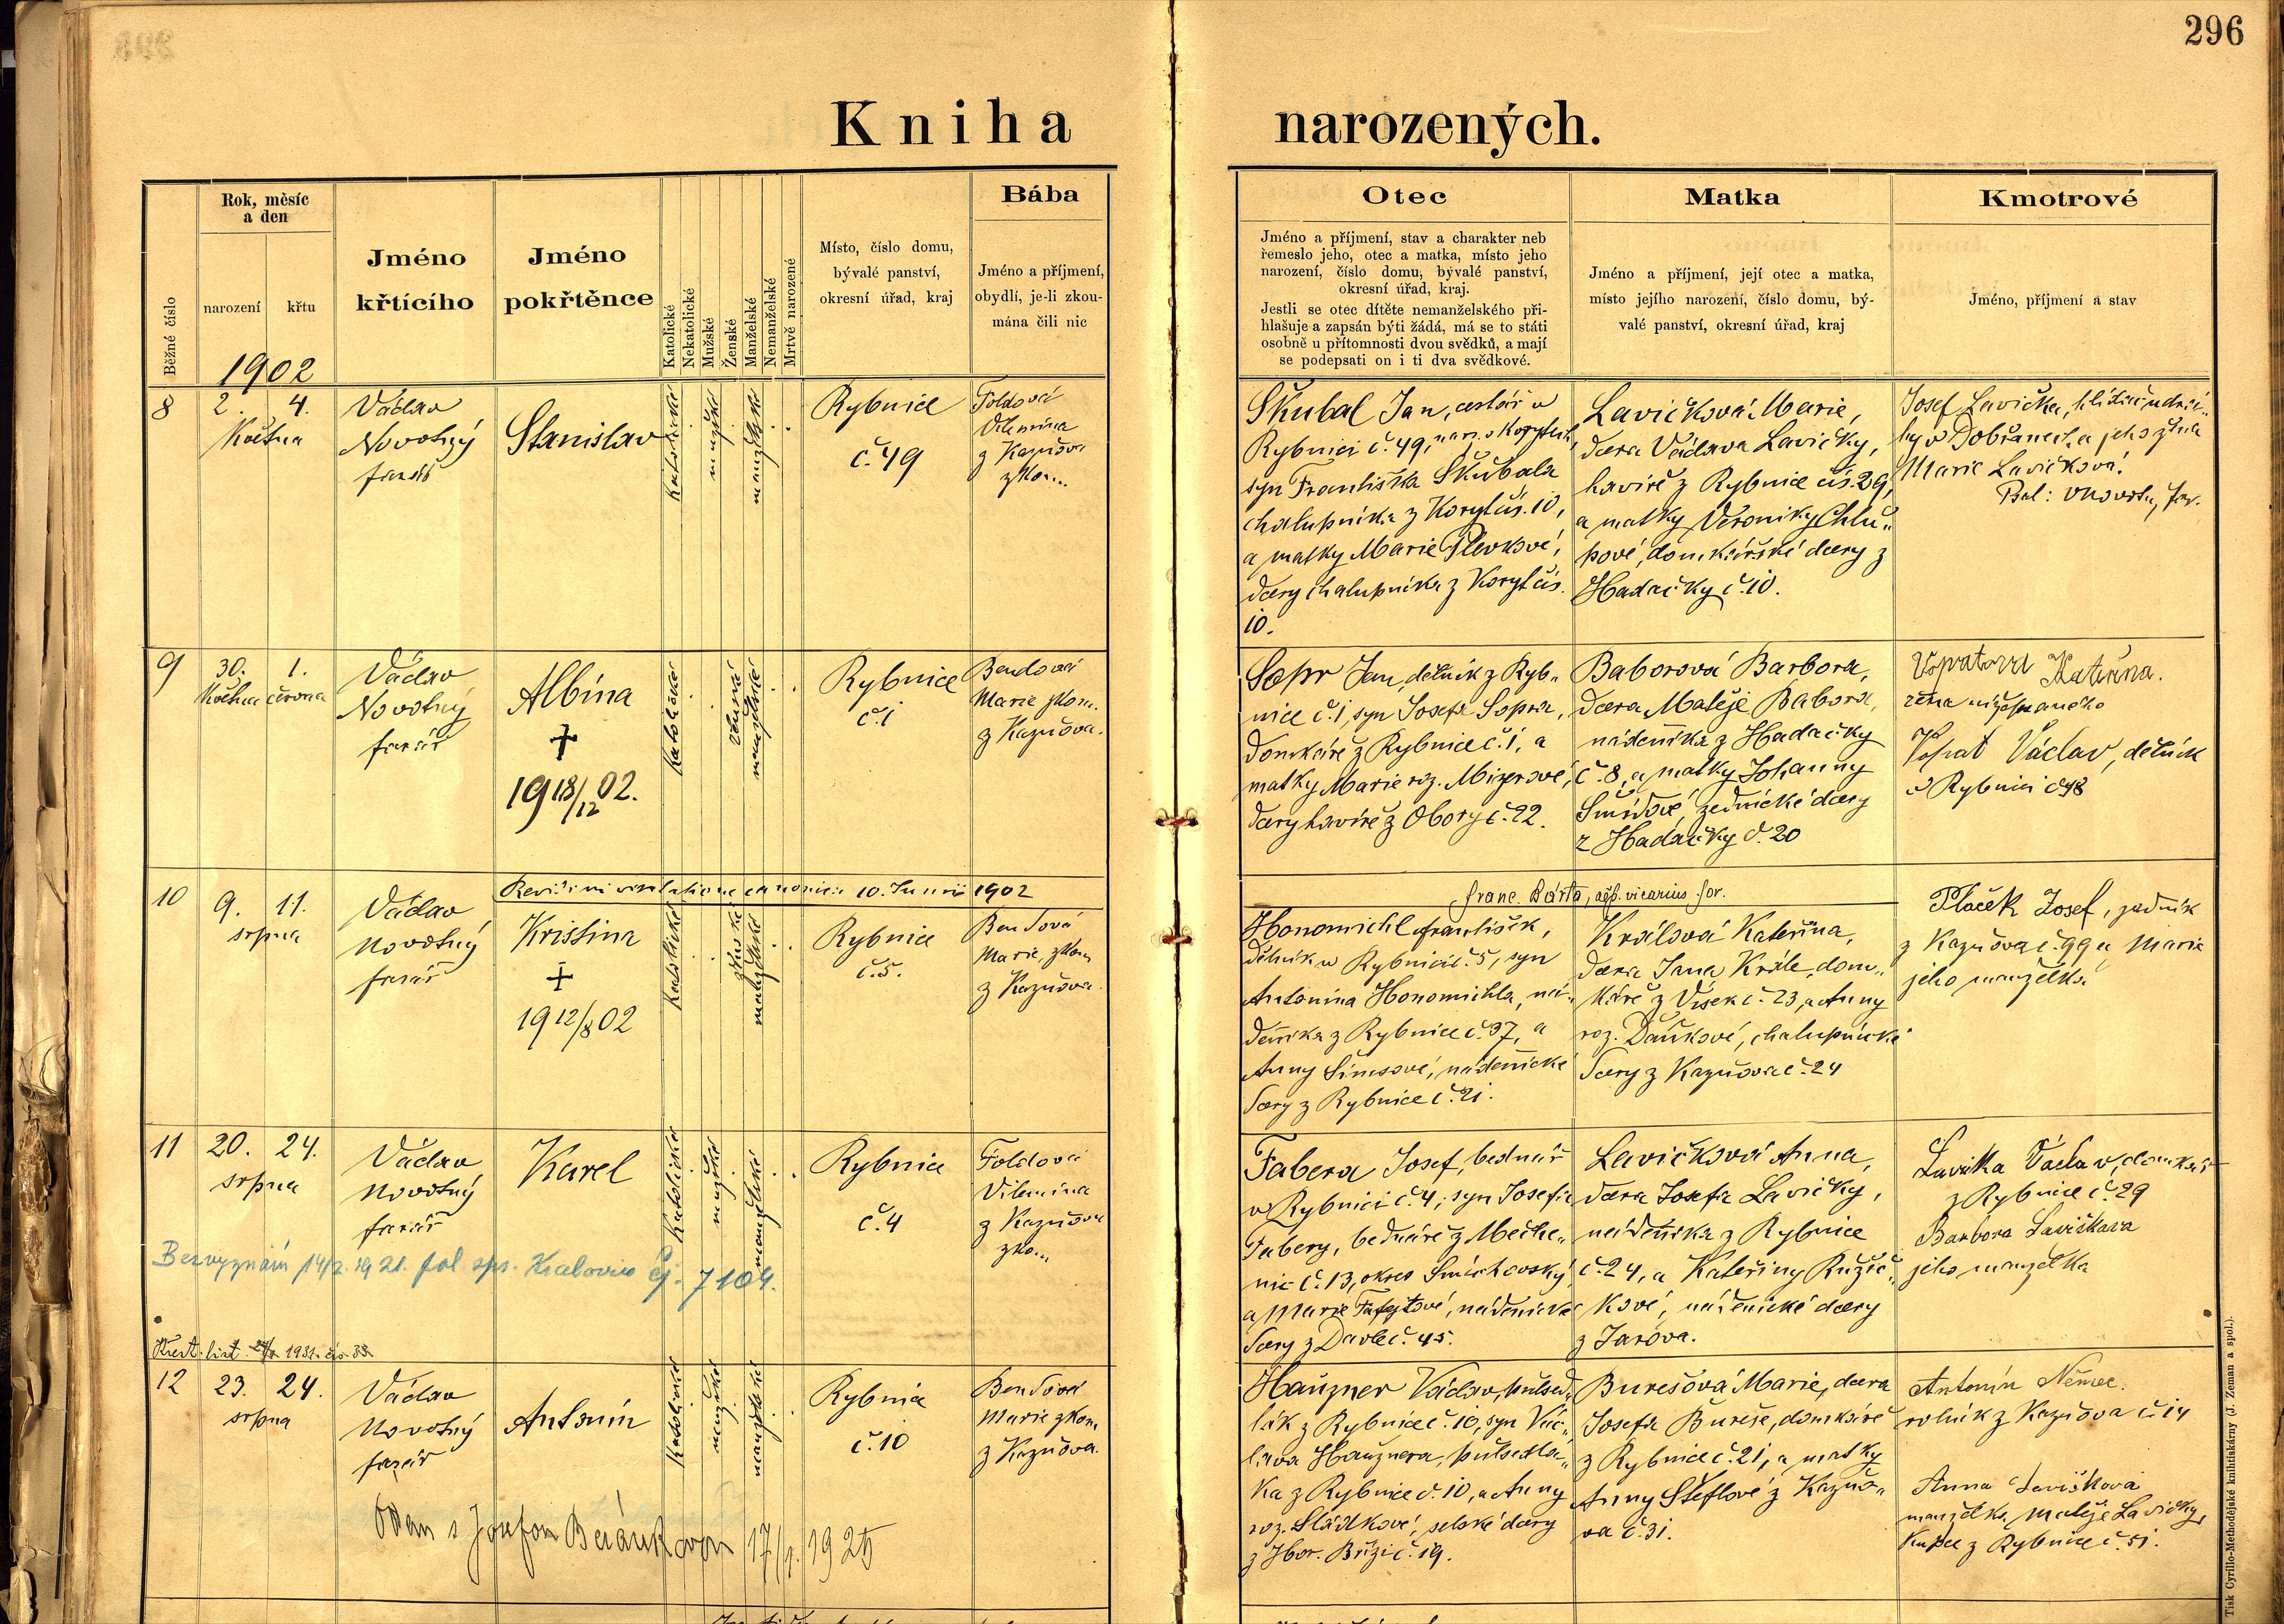 296
Kniha narozených.
Běžné číslo
Rok, měsíc
a den
narození
křtu
Jméno
křtícího
Jméno
pokřtěnce
Katolické
Nekatolické
Mužské
Ženské
Manželské
Nemanželské
Mrtvě narozené
Místo, číslo domu,
bývalé panství,
okresní úřad, kraj
Bába
Jméno a příjmení,
obydlí, je-li zkou-
mána čili nic
Otec
Jméno a příjmení, stav a charakter neb
řemeslo jeho, otec a matka, místo jeho
narození, číslo domu, bývalé panství,
okresní úřad, kraj.
Jestli se otec dítěte nemanželského při-
hlašuje a zapsán býti žádá, má se to státi
osobně u přítomnosti dvou svědků, a mají
se podepsati on i ti dva svědkové.
Matka
Jméno a příjmení, její otec a matka,
místo jejího narození, číslo domu, bý-
valé panství, okresní úřad, kraj
Kmotrové
Jméno, příjmení a stav
1902
8
2. 4.
Května
Václav
Novotný
farář
Stanislav
katolické
mužské
manželské
Rybnice
č. 49
Foldová
Vilemína
z Kaznova
zkou.
Škubal Jan, cestář v
Rybnici č. 49, nar. v Korytech,
syn Františka Škubala
chalupníka z Koryt čís. 10,
a matky Marie Plevkové,
dcery chalupníka z Koryt čís.
10.
Lavičková Marie,
dcera Václava Lavičky,
havíře z Rybnice čís. 29,
a matky Veroniky Chlu„
pové, domkářské dcery z
Hadačky č. 10.
Josef Lavička, hlídač u drá-
hy v Dobřanech a jeho žena
Marie Lavičková.
9
30. 1.
Května června
Václav
Novotný
farář
Albína
+
19 18/12 02.
katolické
ženské
manželské
Rybnice
č. 1
Bendová
Marie zkom.
z Kaznova.
Sopr Jan, dělník z Ryb„
nice č. 1, syn Josefa Sopra,
domkáře z Rybnice č. 1, a
matky Marie roz. Mizerové,
dcery havíře z Obory č. 22.
Baborová Barbora,
dcera Matěje Babora,
nádeníka z Hadačky
č. 8, a matky Johanny
Šmídové, zednické dcery
z Hadačky č. 20
Kateřina.
žena nížepsaného
Vopat Václav, dělník
v Rybnici č 48
10
9. 11.
srpna
Václav
Novotný
farář
Revisi in visitatione canonica 10. Junii 1902
Franc. Bárta, vicarius for.
Kristina
+
19 12/8 02
katolické
ženské
manželské
Rybnice
č. 5.
Bendová
Marie, zkom
z Kaznova.
Honomichl František,
dělník v Rybnici č. 5, syn
Antonína Honomichla, ná„
deníka z Rybnice č. 37, a
Anny Šimsové, nádenické
dcery z Rybnice č. 21.
Králová Kateřina,
dcera Jana Krále, dom„
káře z Vísek č. 23, a Anny
roz. Daňkové, chalupnické
dcery z Kaznova č. 24
Plaček Josef, zedník
z Kaznova č. 99 a Marie
jeho manželka
11
20. 24.
srpna
Václav
Novotný
farář
Karel
katolické
mužské
manželské
Rybnice
č. 4
Foldová
Vilemína
z Kaznova
zkom
Fabera Josef, bednář
v Rybnici č. 4, syn Josefa
Fabery, bednáře z Měche„
nic č. 13, okres Smíchovský
a Marie nádenické
dcery z Davle č. 45.
Lavičková Anna,
dcera Josefa Lavičky,
nádeníka z Rybnice
č. 24, a Kateřiny Růžič„
kové, nádenické dcery
z Jarova.
Lavička Václav, domkář
z Rybnice č. 29
Barbora Lavičková
jeho manželka
Bez vyznání 14/2. 1921. pol. spr. Kralovice čj. 7104.
Křest. list. 1931. čís. 33.
12
23. 24.
srpna
Václav
Novotný
farář
Antonín
katolické
mužské
manželské
Rybnice
č. 10
Bendová
Marie zkom.
z Kaznova.
Hauzner Václav, půlsed„
lák z Rybnice č. 10, syn Vác„
lava Hauznera, půlsedlá„
ka z Rybnice č. 10, a Anny
roz. Sládkové, selské dcery
z Hor. Břízi č. 19.
Burešová Marie, dcera
Josefa Bureše, domkáře
z Rybnice č. 21, a matky
Anny Šteflové z Kazno„
va č. 31.
Antonín Němec.
rolník z Kaznova č. 14
Anna Lavičková
manželka Matěje Lavičky,
kupce z Rybnice č. 51.
Oddán s Josefou Beránkovou 17/1. 1925
Tisk Cyrillo-Methodějské knihtiskárny (J. Zeman a spol.).